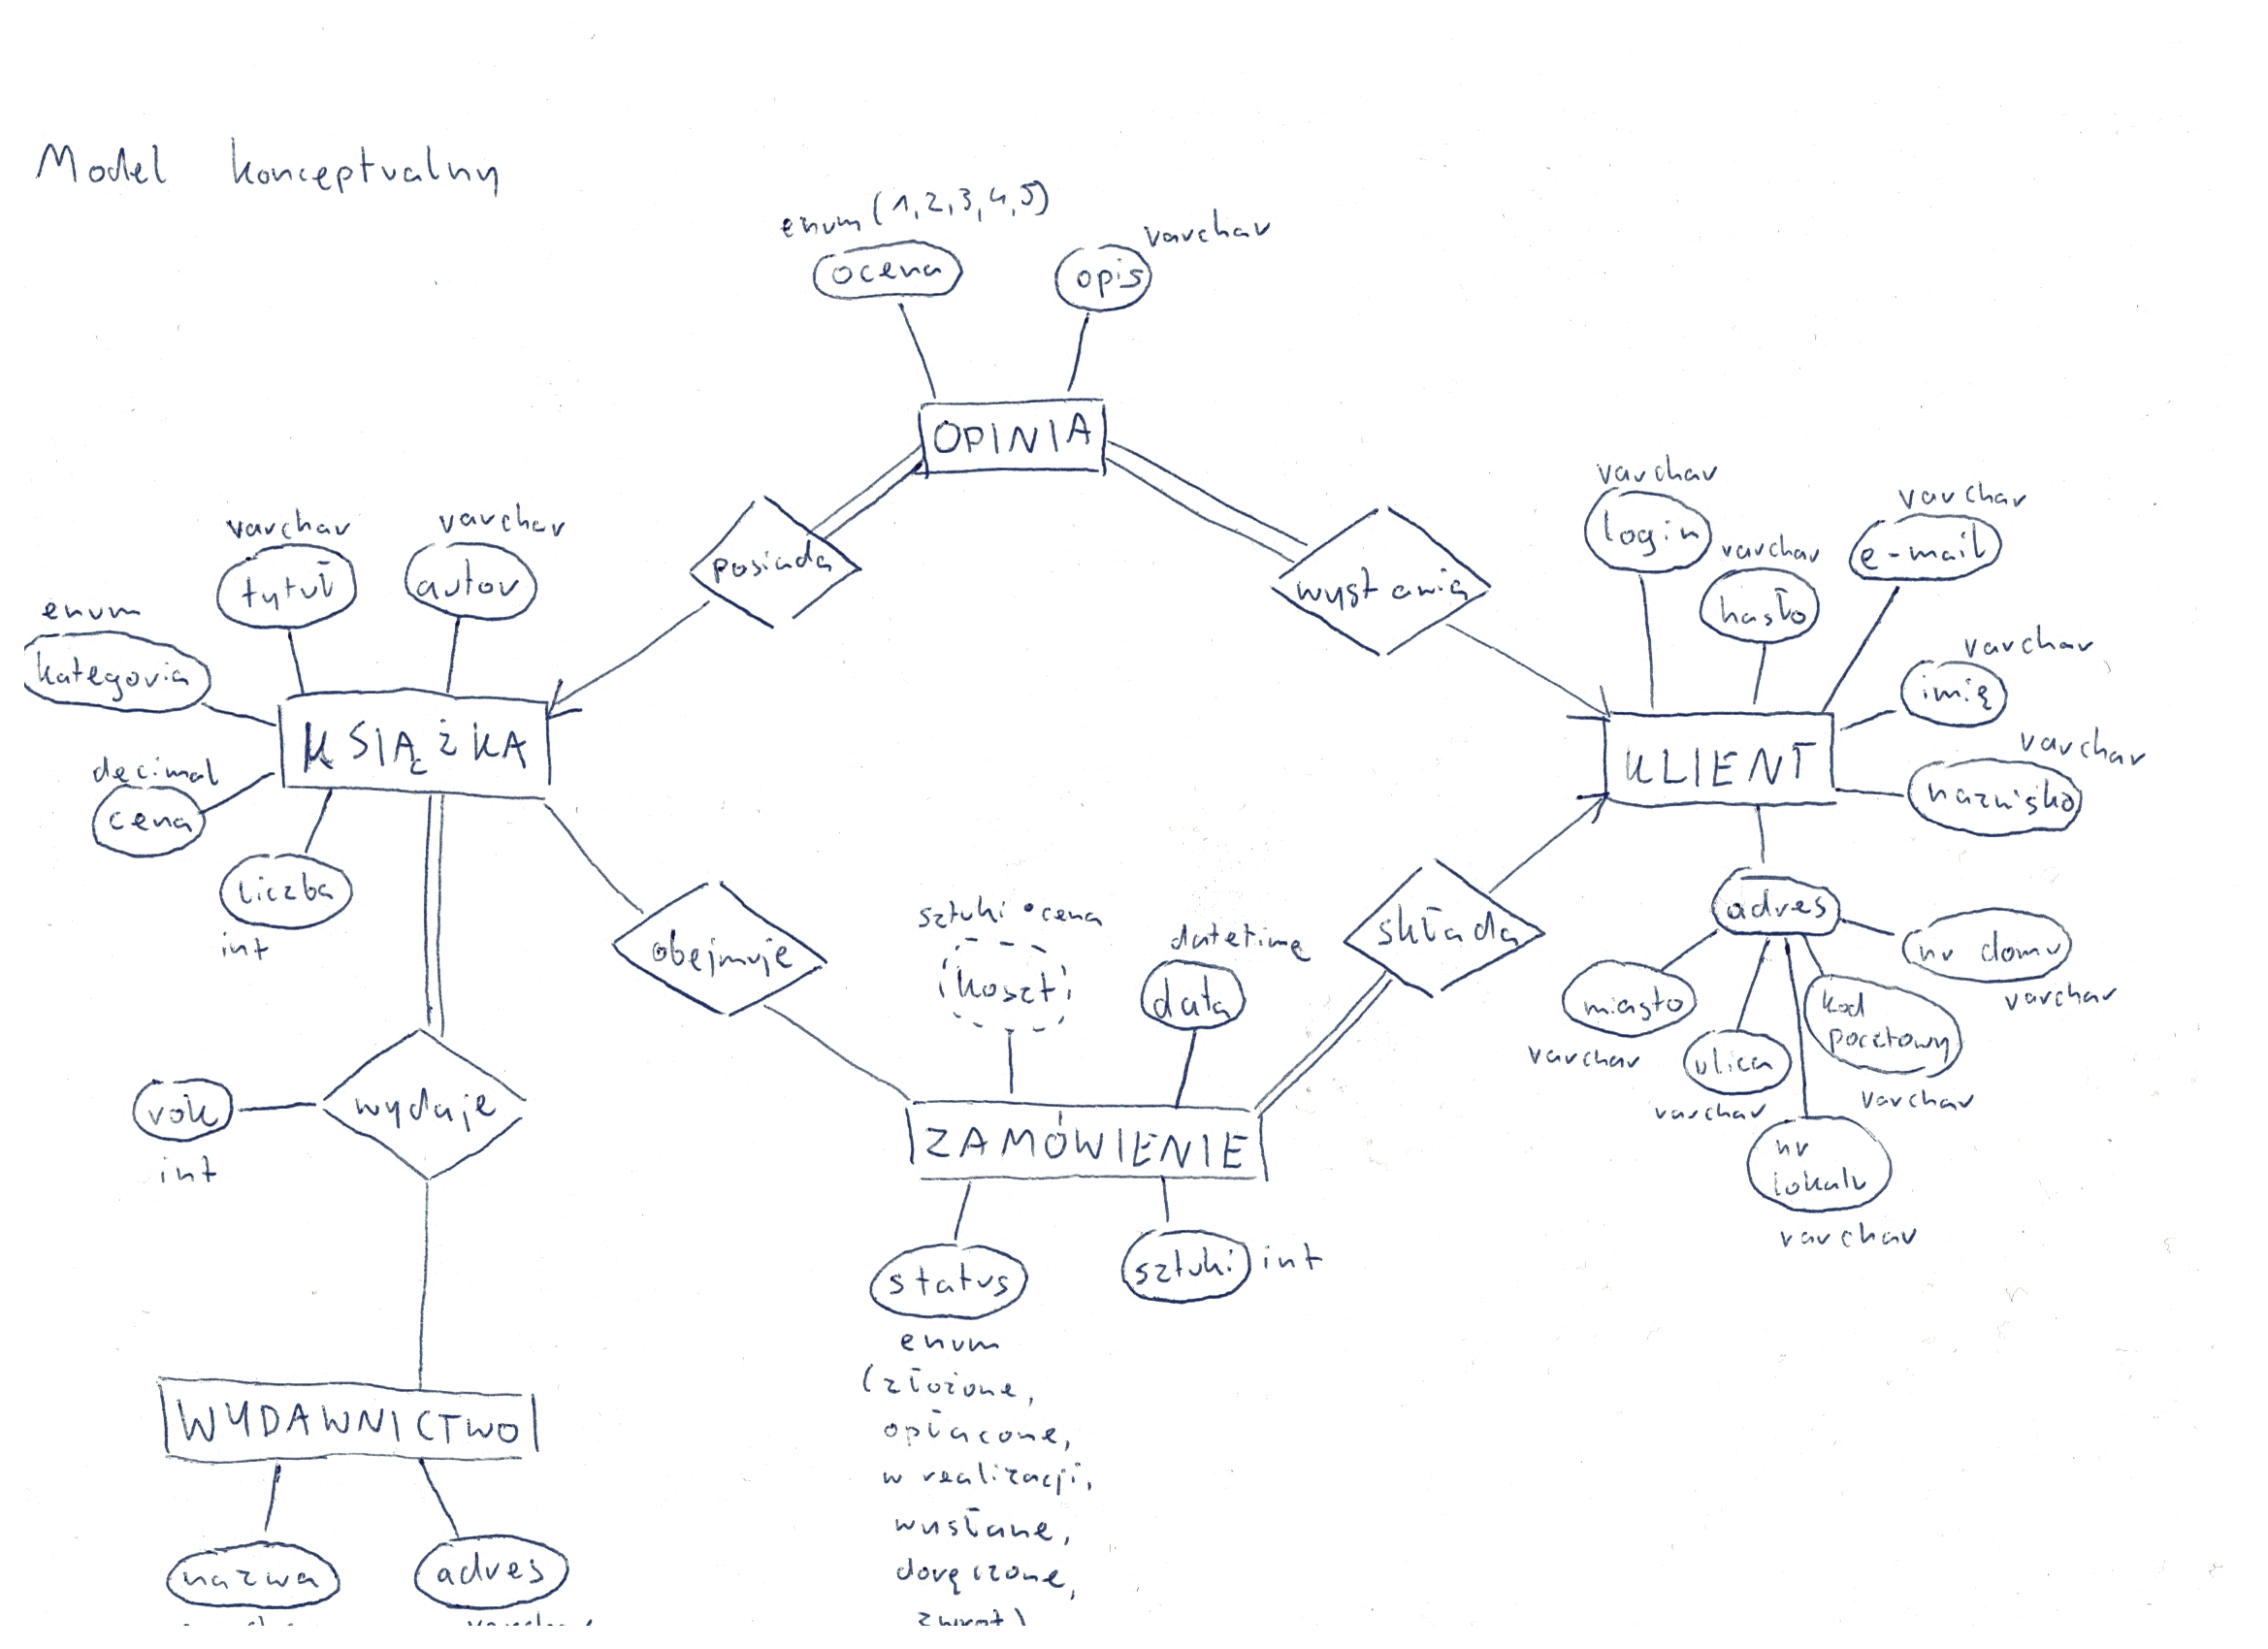 Model konceptualny
enum (1,2,3,4,5)
ocena
varchar
opis
OPINIA
posiada
wystawia
varchar
tytuł
varchar
autor
enum
kategoria
decimal
cena
liczba
int
KSIĄŻKA
varchar
login
varchar
hasło
varchar
e-mail
varchar
imię
varchar
nazwisko
KLIENT
adres
nr domu
varchar
miasto
varchar
ulica
varchar
kod
pocztowy
varchar
nr
lokalu
varchar
obejmuje
składa
sztuki • cena
koszt
datetime
data
ZAMÓWIENIE
status
enum
(złożone,
opłacone,
w realizacji,
wysłane,
doręczone,
zwrot)
sztuki int
rok
int
wydaje
WYDAWNICTWO
nazwa
adres
varchar